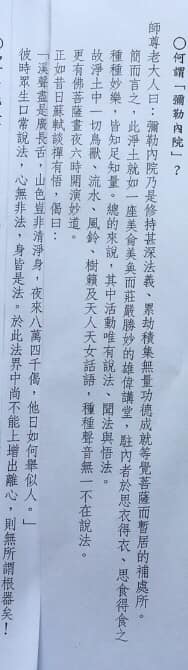 ○何謂「彌勒內院」?
師尊老大人曰：彌勒內院乃是修持甚深法義、累劫積集無量功德成就等覺菩薩而暫居的補處所。
簡而言之，此淨土就如一座美侖美奐而莊嚴勝妙的雄偉講堂，駐內者於思衣得衣、思食得食之
種種妙樂，皆知足知量。總的來說，其中活動唯有說法、聞法與悟法。
故淨土中一切鳥獸、流水、風鈴、樹籟及天人天女話語，種種聲音無一不在說法。
更有佛菩薩晝夜六時開演妙道。
正如昔日蘇軾談禪有悟，偈曰：
「溪聲盡是廣長舌，山色豈非清淨身，夜來八萬四千偈，他日如何舉似人。」
彼時眾生口常說法，心無非法，身皆是法。於此法界中尚不能上增出離心，則無所謂根器矣！